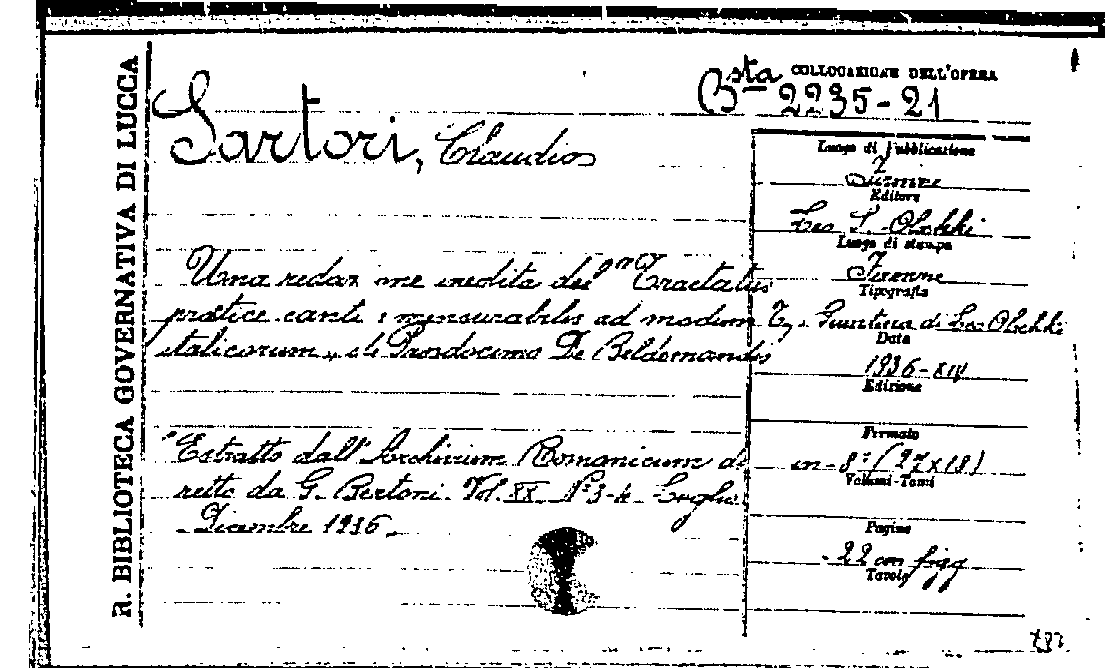 R. BIBLIOTECA GOVERNATIVA DI LUCCA
COLLOCAZIONE DELL'OPERA
Bsta 2235-21
Sartori, Claudio
Una redaz ne inedita del "Tractatus
pratice cantus mensurabilis ad modum
italicorum" di Prosdocimo De Beldemandis
Estratto dall'Archivum Romanicum di
retto da G. Bertoni. Vol. XX N° 3-4 Luglio
Dicembre 1936.
Luogo di Pubblicazione
Firenze
Editore
Leo S. Olschki
Luogo di stampa
Firenze
Tipografia
T. Giuntina di Leo Olschki
Data
1936-XIV
Edizione
Formato
in-8° (27x18)
Volumi-Tomi
Pagine
22 con figg
Tavole